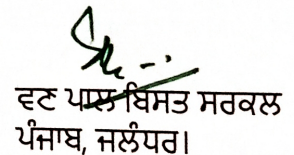 ਵਣ ਪਾਲ ਬਿਸਤ ਸਰਕਲ
ਪੰਜਾਬ, ਜਲੰਧਰ।